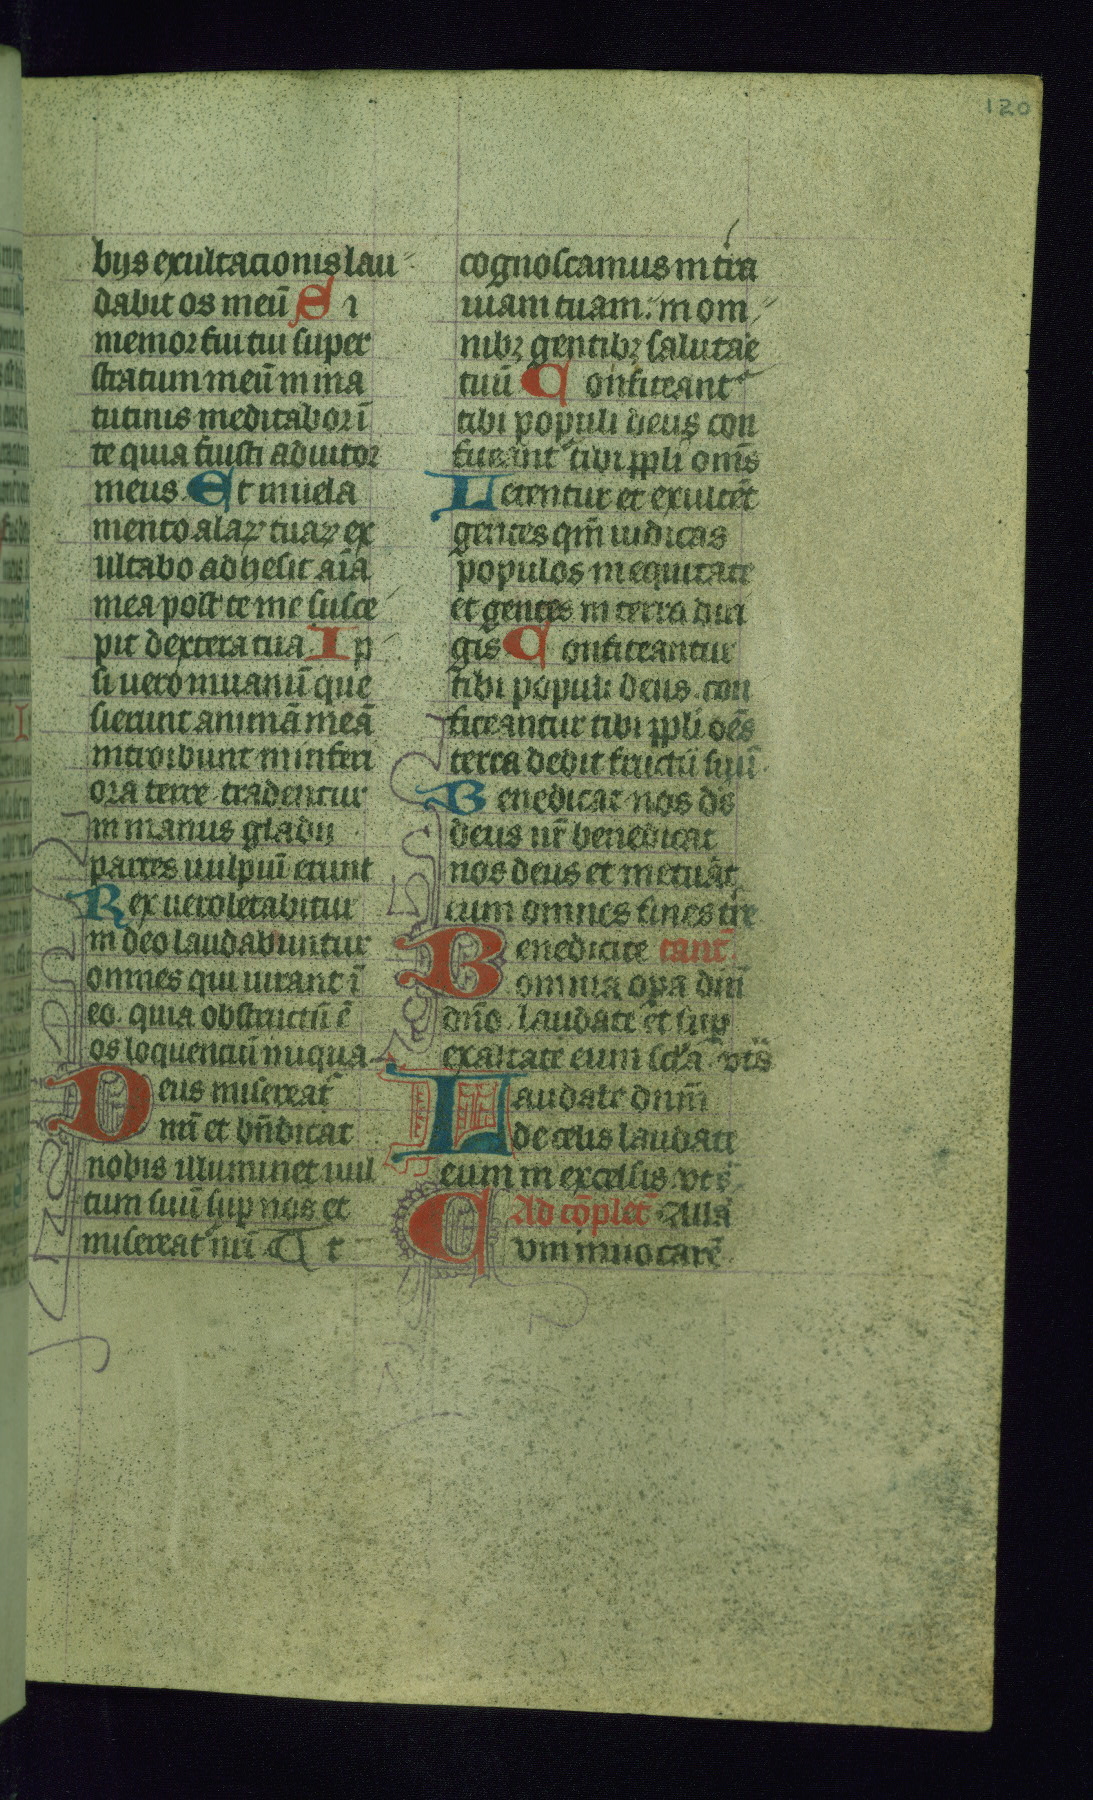 120
bijs exultacionis lau
dabit os meū Si
memor fui tui super
stratum meū in ma
tutinis meditabor ī
te quia fuisti adiutor
meus. Et in uela
mento alaꝝ tuaꝝ ex
ultabo adhesit aīa
mea post te me susce
pit dextera tua Ip
si uero in uanū que
sierunt animā meā
introibunt in inferi
ora terre tradentur
in manus gladij
partes uulpiū erunt
Rex uero letabitur
in deo laudabuntur
omnes qui iurant ī
eo. quia obstructū ē
os loquenciū iniqua
Deus misereat᷑
nr̄i et bn̄dicat
nobis illuminet uul
tum suū sup nos et
misereat᷑ nr̄i Ut
cognoscamus in tr̄a
uiam tuam: in om
nibꝫ gentibꝫ salutare
tuū Confiteant᷑
tibi populi deus con
fiteant᷑ tibi ppli om̄s
Letentur et exultēt
gentes qm̄ iudicas
populos in equitate
et gentes in terra diri
gis Confiteantur
tibi populi deus con
fiteantur tibi ppli oēs
terra dedit fructū suū
Benedicat nos ds̄
deus nr̄ benedicat
nos deus et metuāt
eum omnes fines tr̄e
Benedicite cant̄
omnia opa dn̄i
dn̄o. laudate et sup
exaltate eum scl̄a vts̄
Laudate dn̄m
de celis laudate
eum in excelsis vts̄
Ad cōplet̄ All̄a
Cum inuocarē